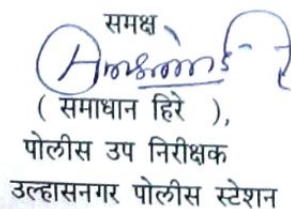 समक्ष
( समाधान हिरे ),
पोलीस उप निरीक्षक
उल्हासनगर पोलीस स्टेशन